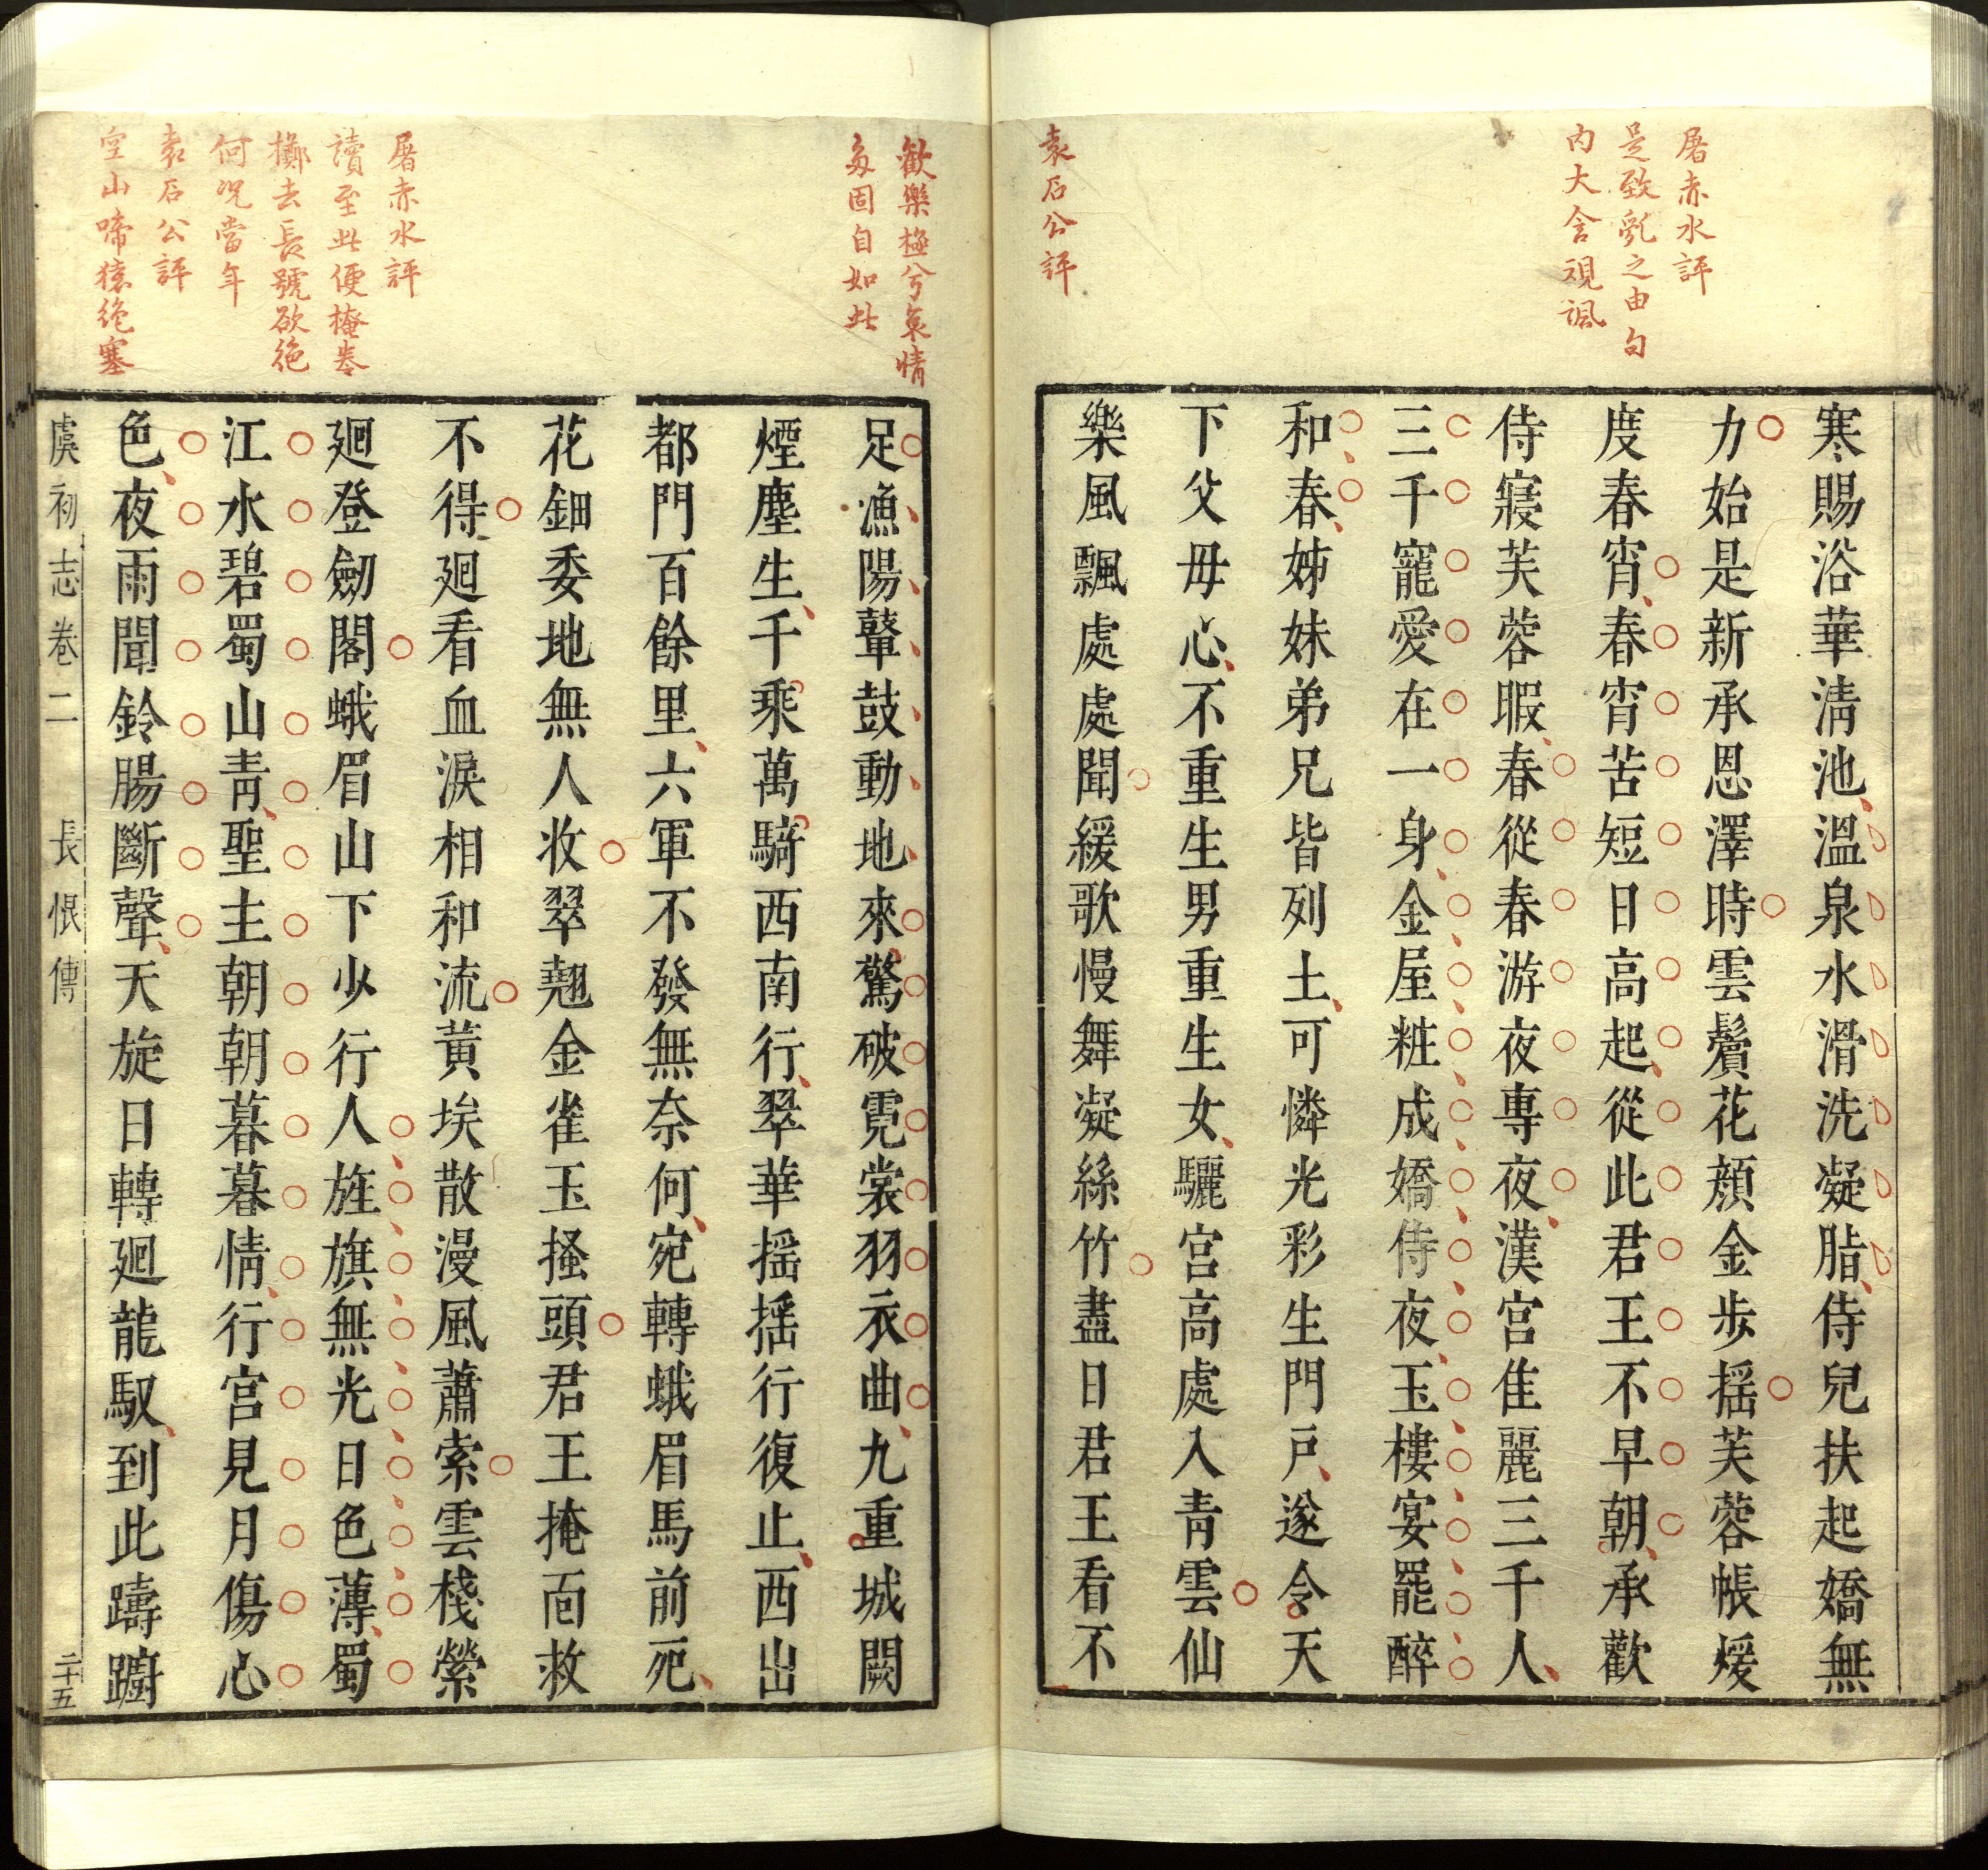 屠赤水評
是致亂之由句
內大含規諷
袁石公評
寒賜浴華淸池溫泉水滑洗凝脂侍兒扶起嬌無
力始是新承恩澤時雲鬢花顏金步搖芙蓉帳煖
度春宵春宵苦短日高起從此君王不早朝承歡
侍寢芙蓉暇春從春游夜專夜漢宮佳麗三千人
三千寵愛在一身金屋粧成嬌侍夜玉樓宴罷醉
和春姊妹弟兄皆列土可憐光彩生門戶遂令天
下父母心不重生男重生女驪宮高處入靑雲仙
樂風飄處處聞緩歌慢舞凝絲竹盡日君王看不
歡樂極兮哀情
多固自如此
屠赤水評
讀至此便掩卷
擲去長號欲絕
何況當年
袁石公評
空山啼猿絕塞
足漁陽鼙鼓動地來驚破霓裳羽衣曲九重城闕
煙塵生千乘萬騎西南行翠華搖搖行復止西出
都門百餘里六軍不發無奈何宛轉蛾眉馬前死
花鈿委地無人收翠翹金雀玉搔頭君王掩面救
不得廻看血淚相和流黃埃散漫風蕭索雲棧縈
廻登劒閣蛾眉山下少行人旌旗無光日色薄蜀
江水碧蜀山靑聖主朝朝暮暮情行宮見月傷心
色夜雨聞鈴腸斷聲天旋日轉廻龍馭到此躊躇
虞初志卷二 長恨傳 二十五